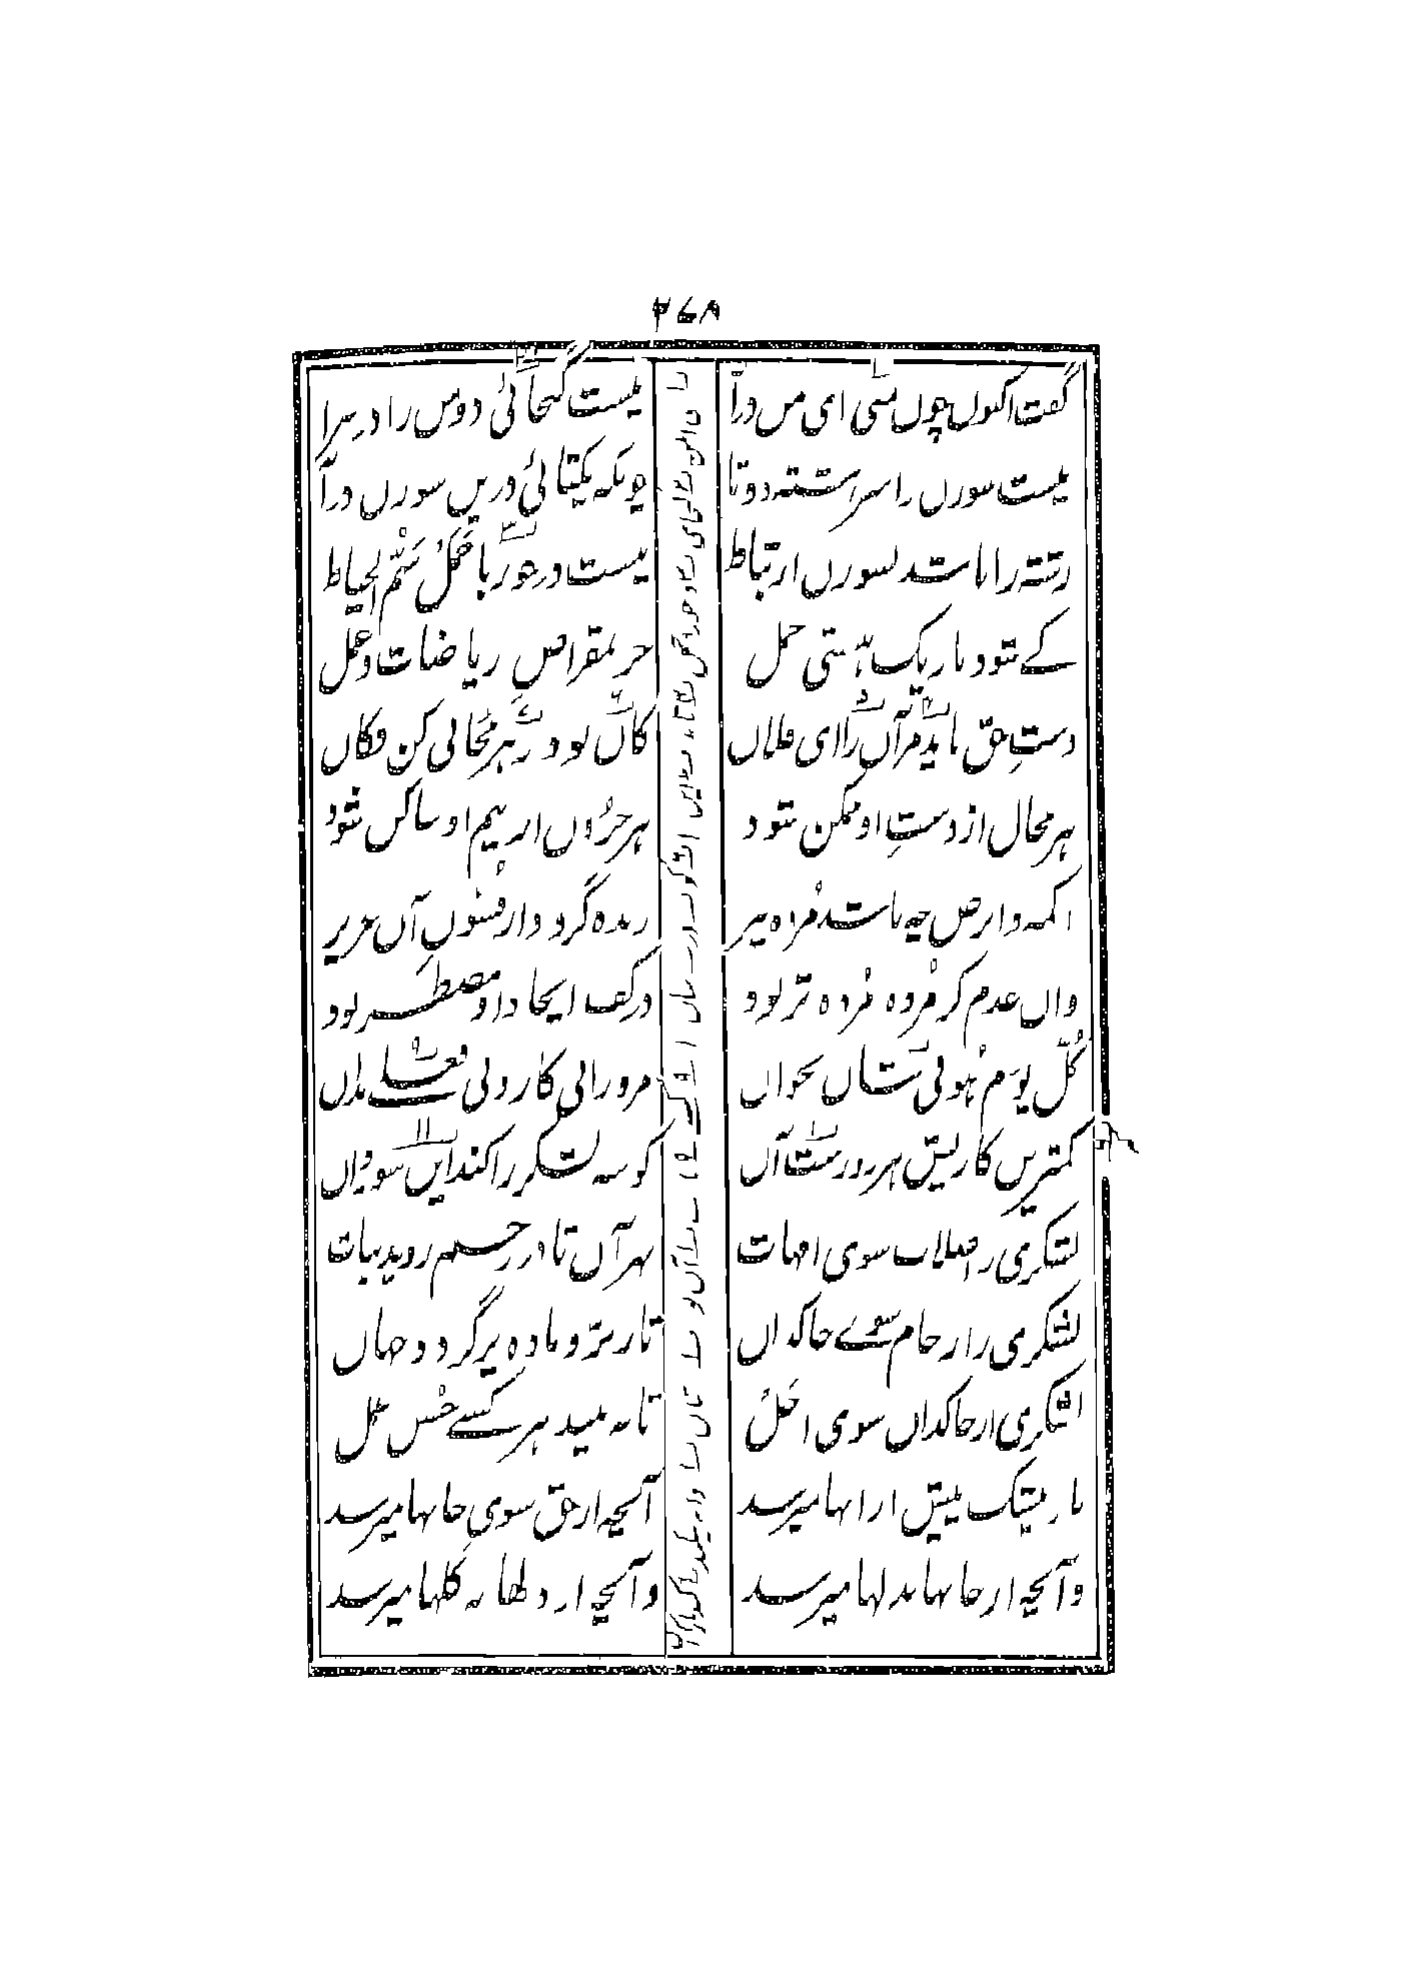 ۲۶۸
گفت اکنوں چوں منی ای من درآ
نیست گنجائی دو من را در سرا
نیست سوزن را سر رشته دوتا
چونکه یکتائی دریں سوزن درآ
رشته را باشد بسوزن ارتباط
نیست در خور با جَمَل سَمّ الخیاط
کے شود باریک هستی جمل
جز بمقراضِ ریاضات و عمل
دستِ حق باید مر آں را ای فلاں
کاں بود بر هر محالی کن فکاں
هر محال از دستِ او ممکن شود
هر حَرُوں از بیم او ساکن شود
اکمه و ابرص چه باشد مُرده نیز
زنده گردد از فسونِ آں عزیز
واں عدم کز مُرده مُرده تر بود
در کف ایجاد او مضطر بود
کُلَّ یَومٍ هُو فی شاں بخواں
مر ورا بی کار و بی فعلے مداں
کمتریں کاریش هر روزست آں
کو سه لشکر را کند ایں سو رواں
لشکری ز اصلاب سوی امهات
بهر آں تا در رحم روید نبات
لشکری ز ارحام سوے خاکداں
تا ز نر و ماده پر گردد جهاں
لشکری از خاکداں سوی اجل
تا به بیند هر کسے حُسن عمل
باز بیشک بیش از آنها میرسد
آنچه از حق سوی جانها میرسد
و آنچه از جانها بدلها میرسد
و آنچه از دلها به گلها میرسد